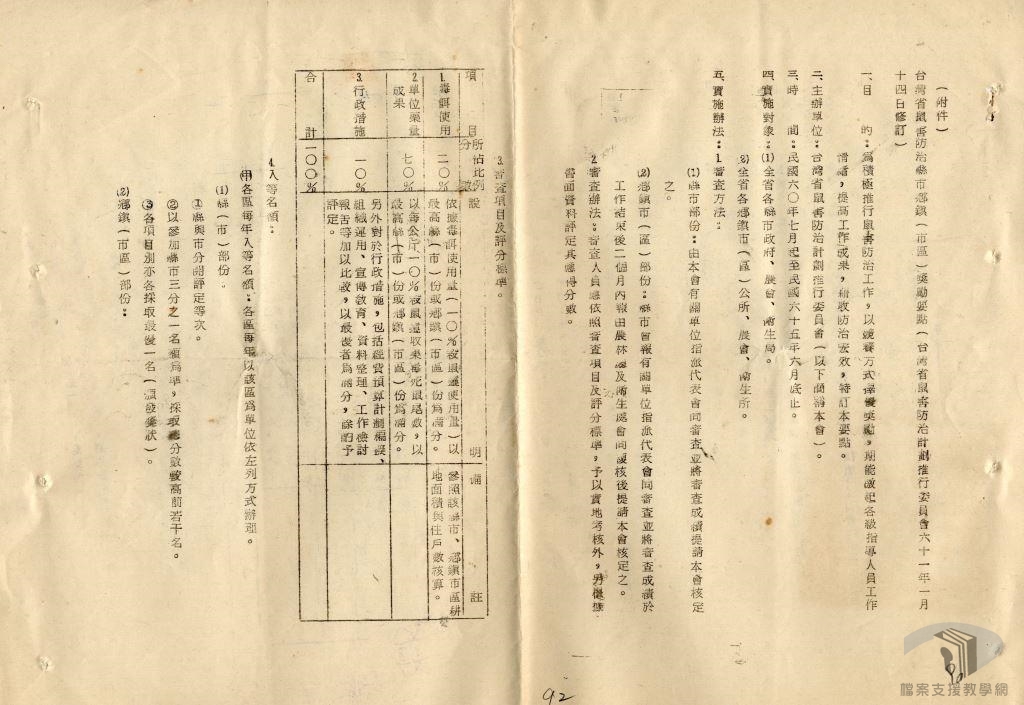 (附件)
台灣省鼠害防治縣市鄉鎮(市區)獎勵要點(台灣省鼠害防治計劃推行委員會六十一年一月
十四日修訂)
一、目的：為積極推行鼠害防治工作，以競賽方式獎勵，期能激起各級指導人員工作
情緒，提高工作成果，防治宏效，特訂本要點。
二、主辦單位：台灣省鼠害防治計劃推行委員會(以下簡稱本會)。
三、時間：民國六〇年七月起至民國六十五年六月底止。
四、實施對象：(1)全省各縣市政府、農會、衛生局。
(2)全省各鄉鎮市(區)公所、農會、衛生所。
五、實施辦法：1.審查方法：
(1)縣市部份：由本會有關單位指派代表會同審查並將審查成績提請本會核定
之。
(2)鄉鎮市(區)部份：縣市會報有關單位指派代表會同審查並將審查成績於
工作結束後二個月內報由農林廳及衛生處會同核後提請本會核定之。
2.審查辦法：審查人員應依照審查項目及評分標準，予以實地考核外，另
書面資料評定其應得分數。
3.審查項目及評分標準。
項目
所佔比例分數
說明
備註
1.毒餌使用
二〇%
依據毒餌使用量(一〇%殺鼠靈使用量)以
最高縣(市)份或鄉鎮(市區)份為滿分。
參照該縣市、鄉鎮市區耕
地面積與住戶數核算。
2.單位藥量
成果
七〇%
以每公斤一〇%殺鼠靈收集毒死鼠尾數，以
最高縣(市)份或鄉鎮(市區)份為滿分。
3.行政措施
一〇%
另外對於行政措施，包括經費預算計劃編擬、
組織運用、宣傳教育、資料整理、工作檢討
報告等加以比較，以最優者為滿分，餘酌予
評定。
合計
一〇〇%
4.入等名額：
(甲)各區每年入等名額：各區每年以該區為單位依左列方式辦理。
(1)縣(市)部份。
①縣與市分開評定等次。
②以參加縣市三分之一名額為準，採取總分數較高前若干名。
③各項目別亦各採取最優一名(頒發獎狀)。
(2)鄉鎮(市區)部份：
92
檔案支援教學網